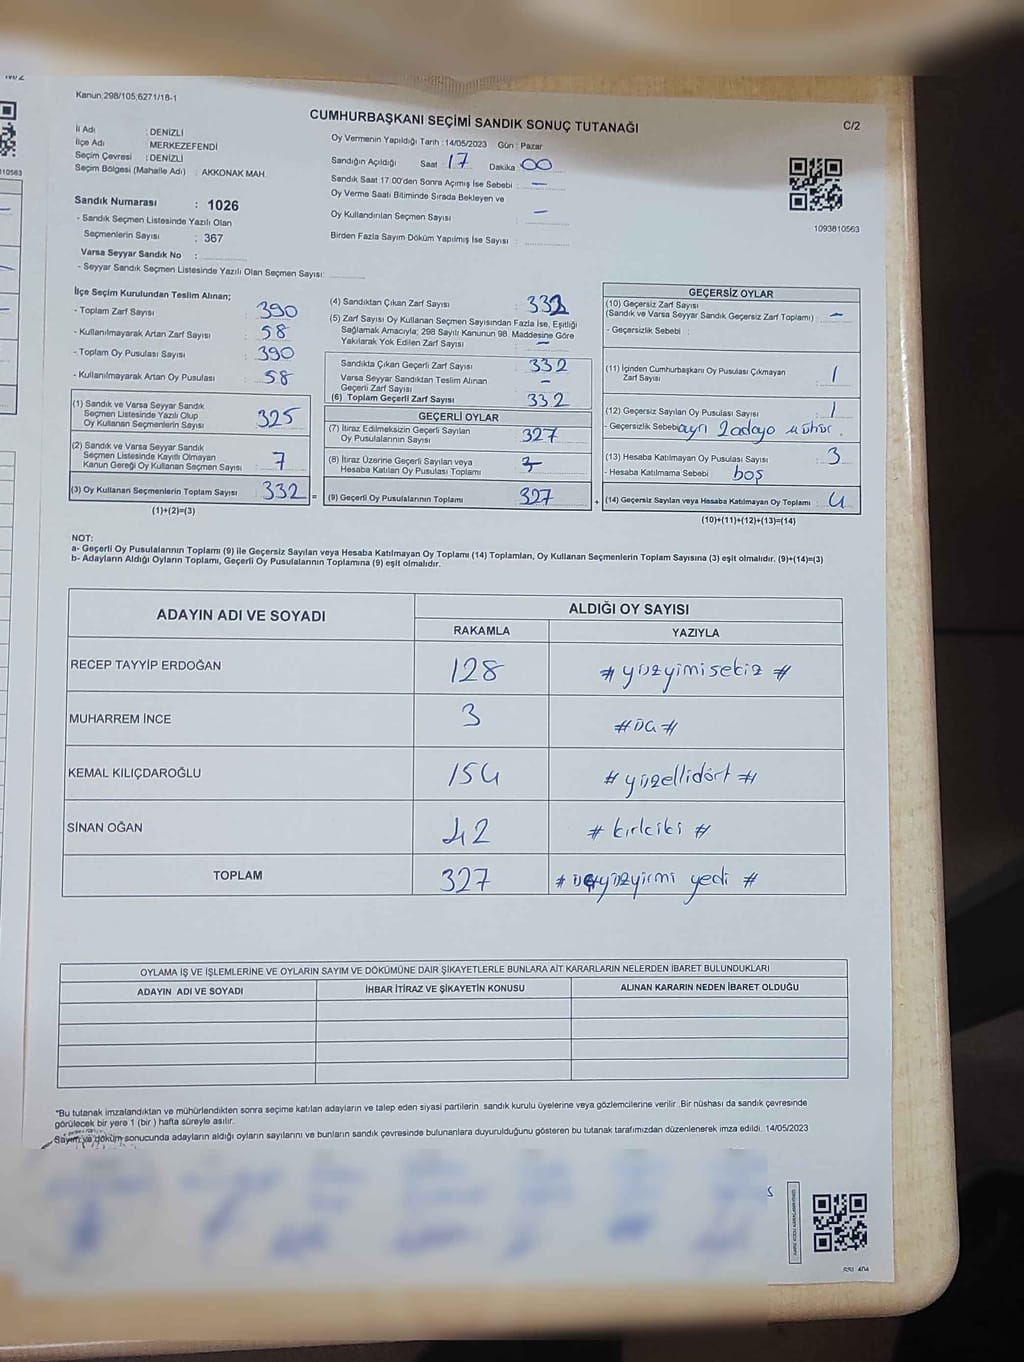 Kanun;298/105;6271/18-1
CUMHURBAŞKANI SEÇİMİ SANDIK SONUÇ TUTANAĞI
C/2
İl Adı : DENİZLİ
İlçe Adı : MERKEZEFENDİ
Seçim Çevresi : DENİZLİ
Seçim Bölgesi (Mahalle Adı) : AKKONAK MAH.
Oy Vermenin Yapıldığı Tarih : 14/05/2023 Gün : Pazar
Sandığın Açıldığı Saat 17 Dakika 00
Sandık Saat 17.00'den Sonra Açımış İse Sebebi : —
Oy Verme Saati Bitiminde Sırada Bekleyen ve
Oy Kullandırılan Seçmen Sayısı : —
Birden Fazla Sayım Döküm Yapılmış İse Sayısı :
1093810563
Sandık Numarası : 1026
- Sandık Seçmen Listesinde Yazılı Olan
Seçmenlerin Sayısı : 367
Varsa Seyyar Sandık No :
- Seyyar Sandık Seçmen Listesinde Yazılı Olan Seçmen Sayısı:
İlçe Seçim Kurulundan Teslim Alınan;
- Toplam Zarf Sayısı : 390
- Kullanılmayarak Artan Zarf Sayısı : 58
- Toplam Oy Pusulası Sayısı : 390
- Kullanılmayarak Artan Oy Pusulası : 58
(1) Sandık ve Varsa Seyyar Sandık
Seçmen Listesinde Yazılı Olup
Oy Kullanan Seçmenlerin Sayısı : 325
(2) Sandık ve Varsa Seyyar Sandık
Seçmen Listesinde Kayıtlı Olmayan
Kanun Gereği Oy Kullanan Seçmen Sayısı : 7
(3) Oy Kullanan Seçmenlerin Toplam Sayısı : 332 =
(1)+(2)=(3)
(4) Sandıktan Çıkan Zarf Sayısı : 332
(5) Zarf Sayısı Oy Kullanan Seçmen Sayısından Fazla İse, Eşitliği
Sağlamak Amacıyla; 298 Sayılı Kanunun 98. Maddesine Göre
Yakılarak Yok Edilen Zarf Sayısı : —
Sandıkta Çıkan Geçerli Zarf Sayısı : 332
Varsa Seyyar Sandıktan Teslim Alınan
Geçerli Zarf Sayısı : —
(6) Toplam Geçerli Zarf Sayısı : 332
GEÇERLİ OYLAR
(7) İtiraz Edilmeksizin Geçerli Sayılan
Oy Pusulalarının Sayısı : 327
(8) İtiraz Üzerine Geçerli Sayılan veya
Hesaba Katılan Oy Pusulası Toplamı :
(9) Geçerli Oy Pusulalarının Toplamı : 327 +
GEÇERSİZ OYLAR
(10) Geçersiz Zarf Sayısı
(Sandık ve Varsa Seyyar Sandık Geçersiz Zarf Toplamı) : —
- Geçersizlik Sebebi :
(11) İçinden Cumhurbaşkanı Oy Pusulası Çıkmayan
Zarf Sayısı : 1
(12) Geçersiz Sayılan Oy Pusulası Sayısı : 1
- Geçersizlik Sebebi ayrı 2adaya mühür.
(13) Hesaba Katılmayan Oy Pusulası Sayısı : 3
- Hesaba Katılmama Sebebi : boş
(14) Geçersiz Sayılan veya Hesaba Katılmayan Oy Toplamı : 4
(10)+(11)+(12)+(13)=(14)
NOT:
a- Geçerli Oy Pusulalarının Toplamı (9) ile Geçersiz Sayılan veya Hesaba Katılmayan Oy Toplamı (14) Toplamları, Oy Kullanan Seçmenlerin Toplam Sayısına (3) eşit olmalıdır. (9)+(14)=(3)
b- Adayların Aldığı Oyların Toplamı, Geçerli Oy Pusulalarının Toplamına (9) eşit olmalıdır.
ADAYIN ADI VE SOYADI
ALDIĞI OY SAYISI
RAKAMLA YAZIYLA
RECEP TAYYİP ERDOĞAN 128 # yüzyimisekiz #
MUHARREM İNCE 3 # üç #
KEMAL KILIÇDAROĞLU 154 # yüzellidört #
SİNAN OĞAN 42 # kırkiki #
TOPLAM 327 # üçyüzyirmi yedi #
OYLAMA İŞ VE İŞLEMLERİNE VE OYLARIN SAYIM VE DÖKÜMÜNE DAİR ŞİKAYETLERLE BUNLARA AİT KARARLARIN NELERDEN İBARET BULUNDUKLARI
ADAYIN ADI VE SOYADI İHBAR İTİRAZ VE ŞİKAYETİN KONUSU ALINAN KARARIN NEDEN İBARET OLDUĞU
*Bu tutanak imzalandıktan ve mühürlendikten sonra seçime katılan adayların ve talep eden siyasi partilerin sandık kurulu üyelerine veya gözlemcilerine verilir. Bir nüshası da sandık çevresinde
görülecek bir yere 1 (bir ) hafta süreyle asılır.
Sayım ve döküm sonucunda adayların aldığı oyların sayılarını ve bunların sandık çevresinde bulunanlara duyurulduğunu gösteren bu tutanak tarafımızdan düzenlenerek imza edildi. 14/05/2023